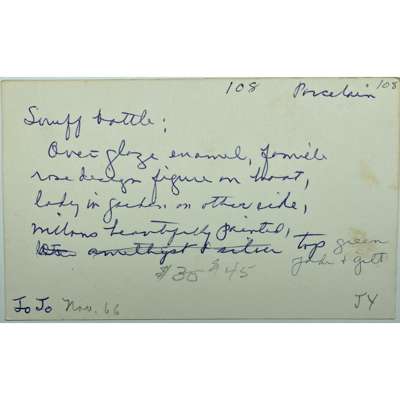 108 Porcelain 108
Snuff bottle;
Over glaze enamel, famile
rose design figure on boat,
lady in garden on other side,
beautifully painted,
amethyst & silver top green
jade & gilt
$ $45
JoJo Nov. 66 JY